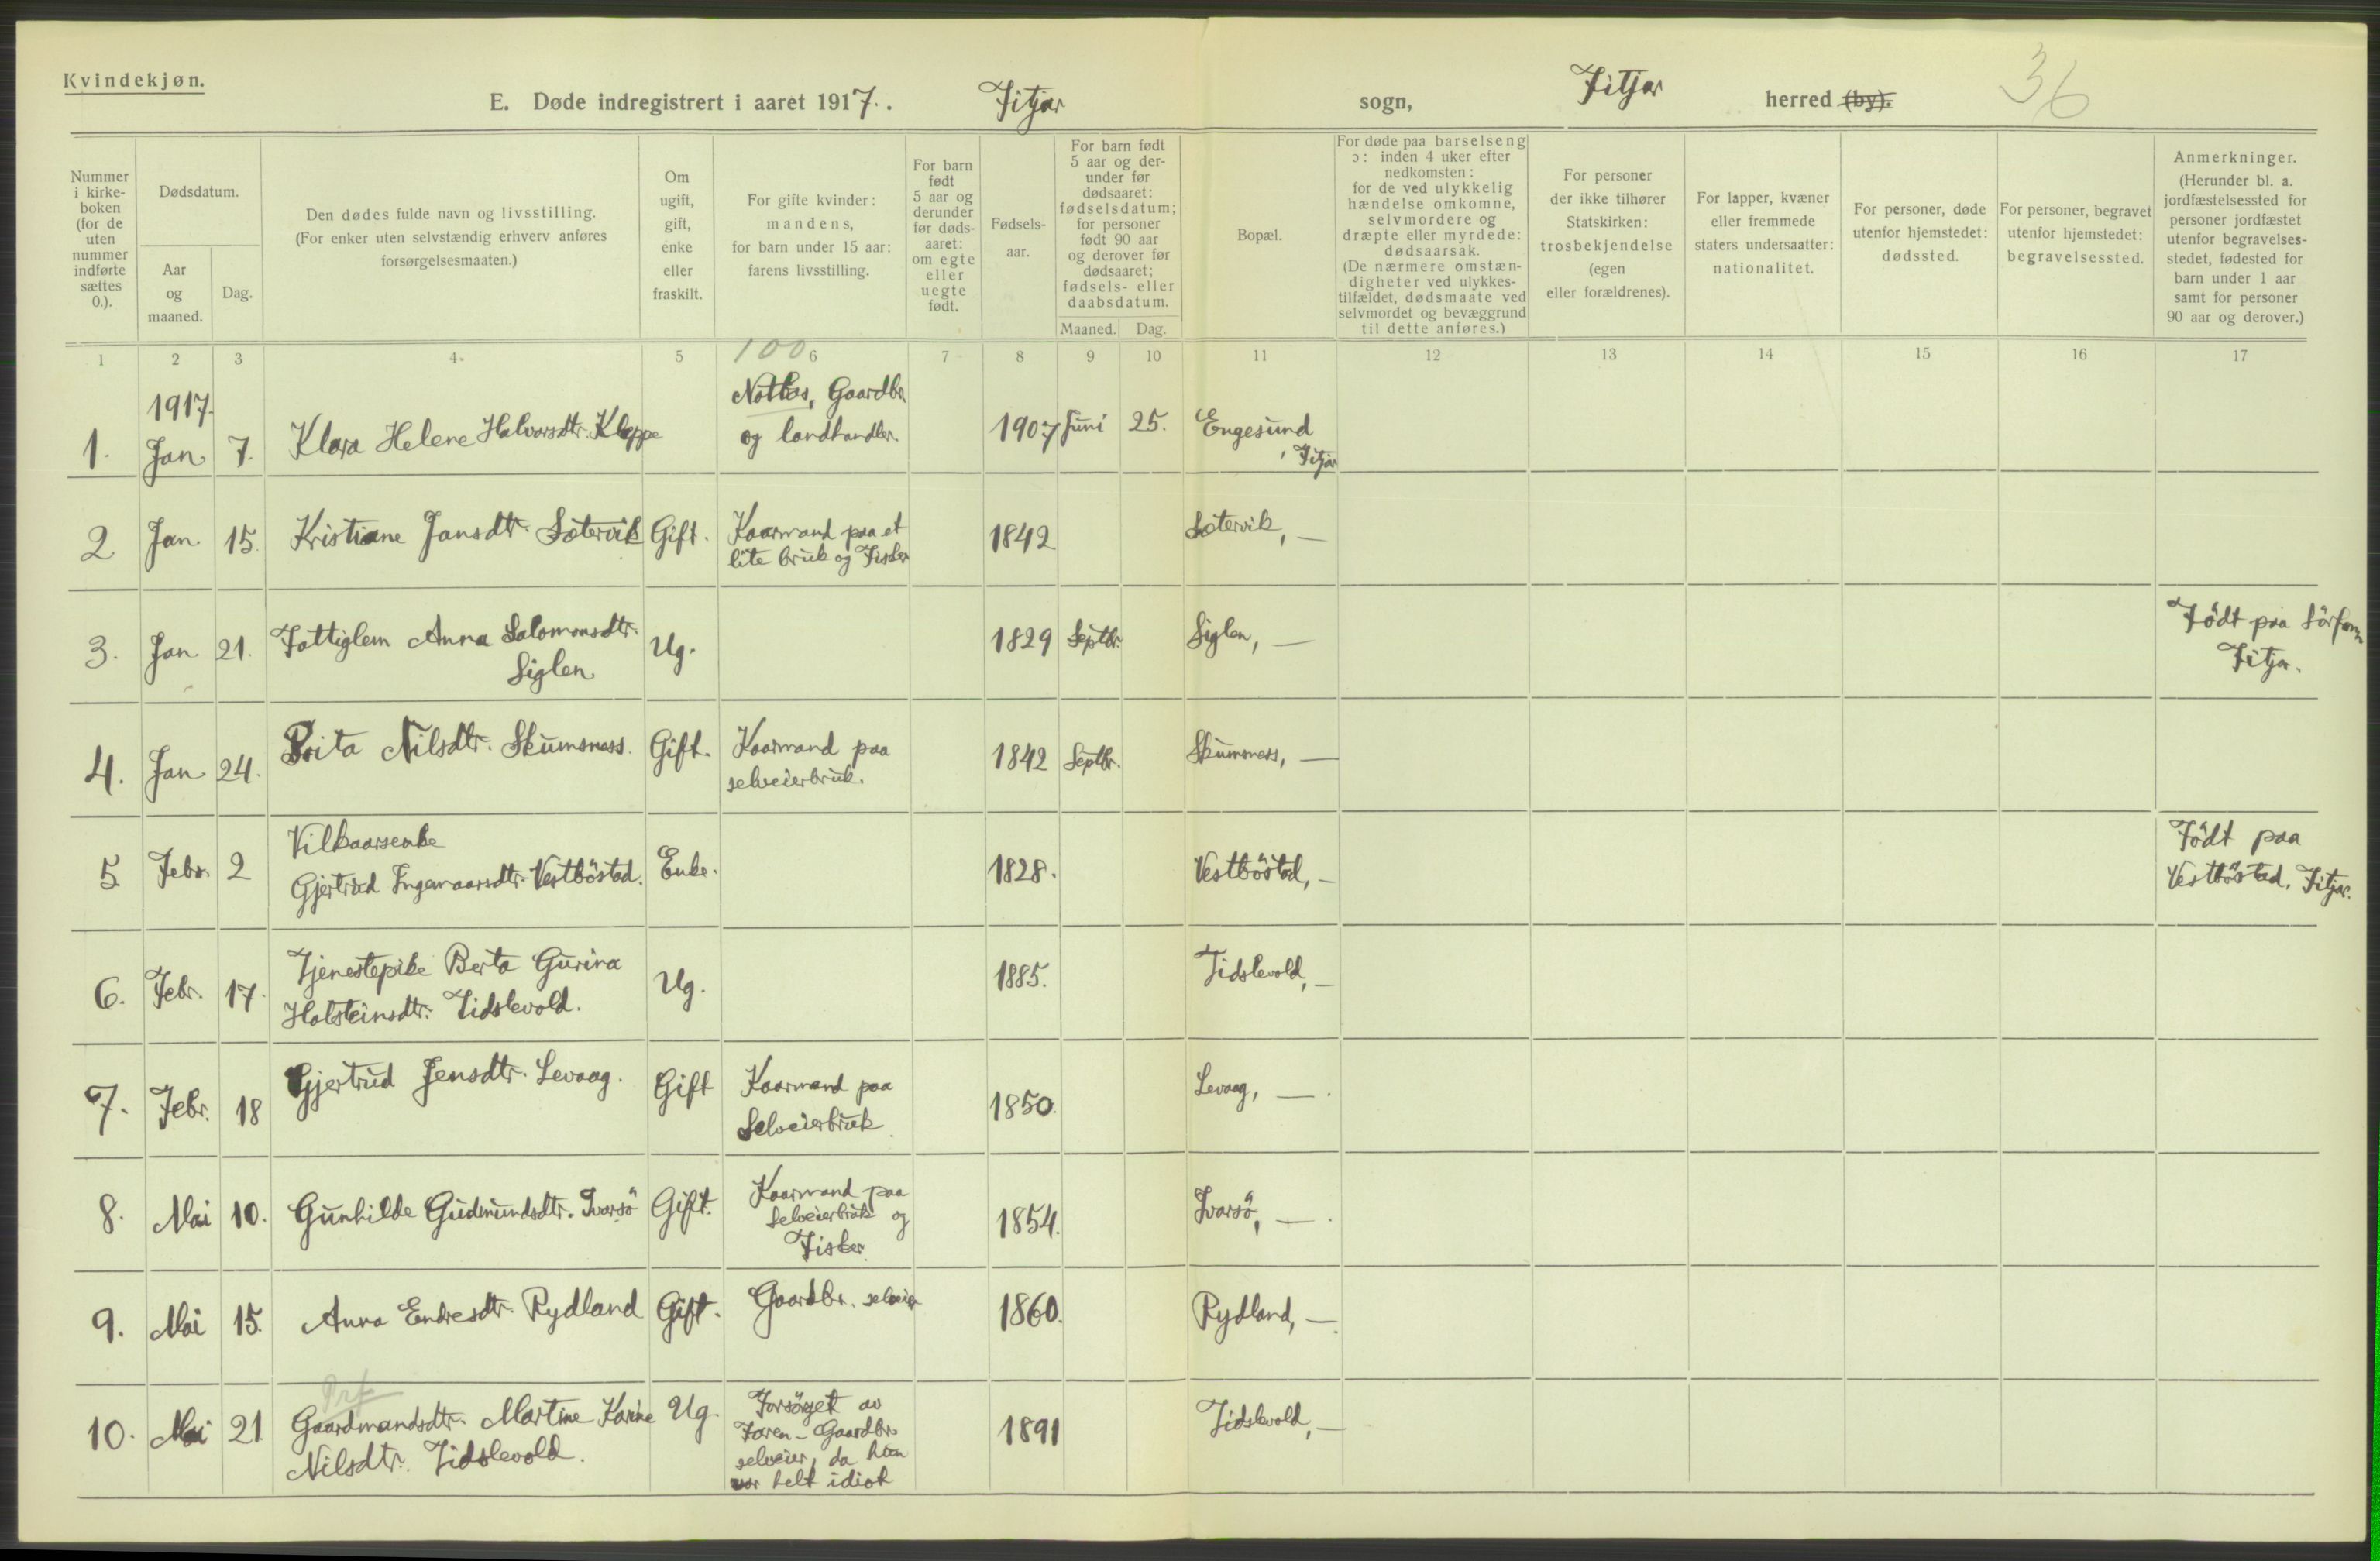 Kvindekjøn.
E. Døde indregistrert i aaret 1917. Fitjar sogn, Fitjar herred (by). 36
Nummer
i kirke-
boken
(for de
uten
nummer
indførte
sættes
0.).
Dødsdatum.
Aar
og
maaned.
Dag.
Den dødes fulde navn og livsstilling.
(For enker uten selvstændig erhverv anføres
forsørgelsesmaaten.)
Om
ugift,
gift,
enke
eller
fraskilt.
For gifte kvinder:
mandens,
for barn under 15 aar:
farens livsstilling.
For barn
født
5 aar og
derunder
før døds-
aaret:
om egte
eller
uegte
født.
Fødsels-
aar.
For barn født
5 aar og der-
under før
dødsaaret:
fødselsdatum;
for personer
født 90 aar
og derover før
dødsaaret;
fødsels- eller
daabsdatum.
Maaned.
Dag.
Bopæl.
For døde paa barselseng
ɔ: inden 4 uker efter
nedkomsten:
for de ved ulykkelig
hændelse omkomne,
selvmordere og
dræpte eller myrdede:
dødsaarsak.
(De nærmere omstæn-
digheter ved ulykkes-
tilfældet, dødsmaate ved
selvmordet og bevæggrund
til dette anføres.)
For personer
der ikke tilhører
Statskirken:
trosbekjendelse
(egen
eller forældrenes).
For lapper, kvæner
eller fremmede
staters undersaatter:
nationalitet.
For personer, døde
utenfor hjemstedet:
dødssted.
For personer, begravet
utenfor hjemstedet:
begravelsessted.
Anmerkninger.
(Herunder bl. a.
jordfæstelsessted for
personer jordfæstet
utenfor begravelses-
stedet, fødested for
barn under 1 aar
samt for personer
90 aar og derover.)
1 2 3 4 5 6 7 8 9 10 11 12 13 14 15 16 17
100
1917.
1. Jan. 7. Klara Helene Halvorsdtr. Kleppe
Gaardbr.
og landhandler.
1907 Juni 25. Engesund
, Fitjar
2 Jan. 15. Kristiane Jansdtr. Sætervik Gift.
Kaarmand paa et
lite bruk og Fisker
1842 Sætervik, —
3. Jan. 21. Fattiglem Anna Salomonsdtr.
Siglen
Ug. 1829 Septbr. Siglen, —
Födt paa
Fitjar.
4. Jan. 24. Brita Nilsdtr. Skumsnæss. Gift.
Kaarmand paa
selveierbruk.
1842 Septbr. Skumsnæss, —
5 Febr. 2 Vilkaarsenke
Gjertrud Ingemaarsdtr. Vestböstad.
Enke. 1828. Vestböstad, —
Födt paa
Vestböstad, Fitjar.
6. Febr. 17. Tjenestepike Berta Gurina
Holsteinsdtr. Tidslevold.
Ug. 1885. Tidslevold, —
7. Febr. 18 Gjertrud Jensdtr. Levaag. Gift
Kaarmand paa
Selveierbruk.
1850. Levaag, —.
8. Mai 10. Gunhilde Gudmundsdtr. Ivarsö Gift.
Kaarmand paa
Selveierbruk og
Fisker.
1854. Ivarsö, —.
9. Mai 15. Anna Endresdtr. Rydland Gift. Gaardbr. selveier 1860. Rydland, —.
10. Mai 21. Gaardmandsdtr. Martine Karine
Nilsdtr. Tidslevold.
Ug. Forsörget av
Faren - Gaardbr.
selveier, da hun
var helt idiot
1891 Tidslevold, —